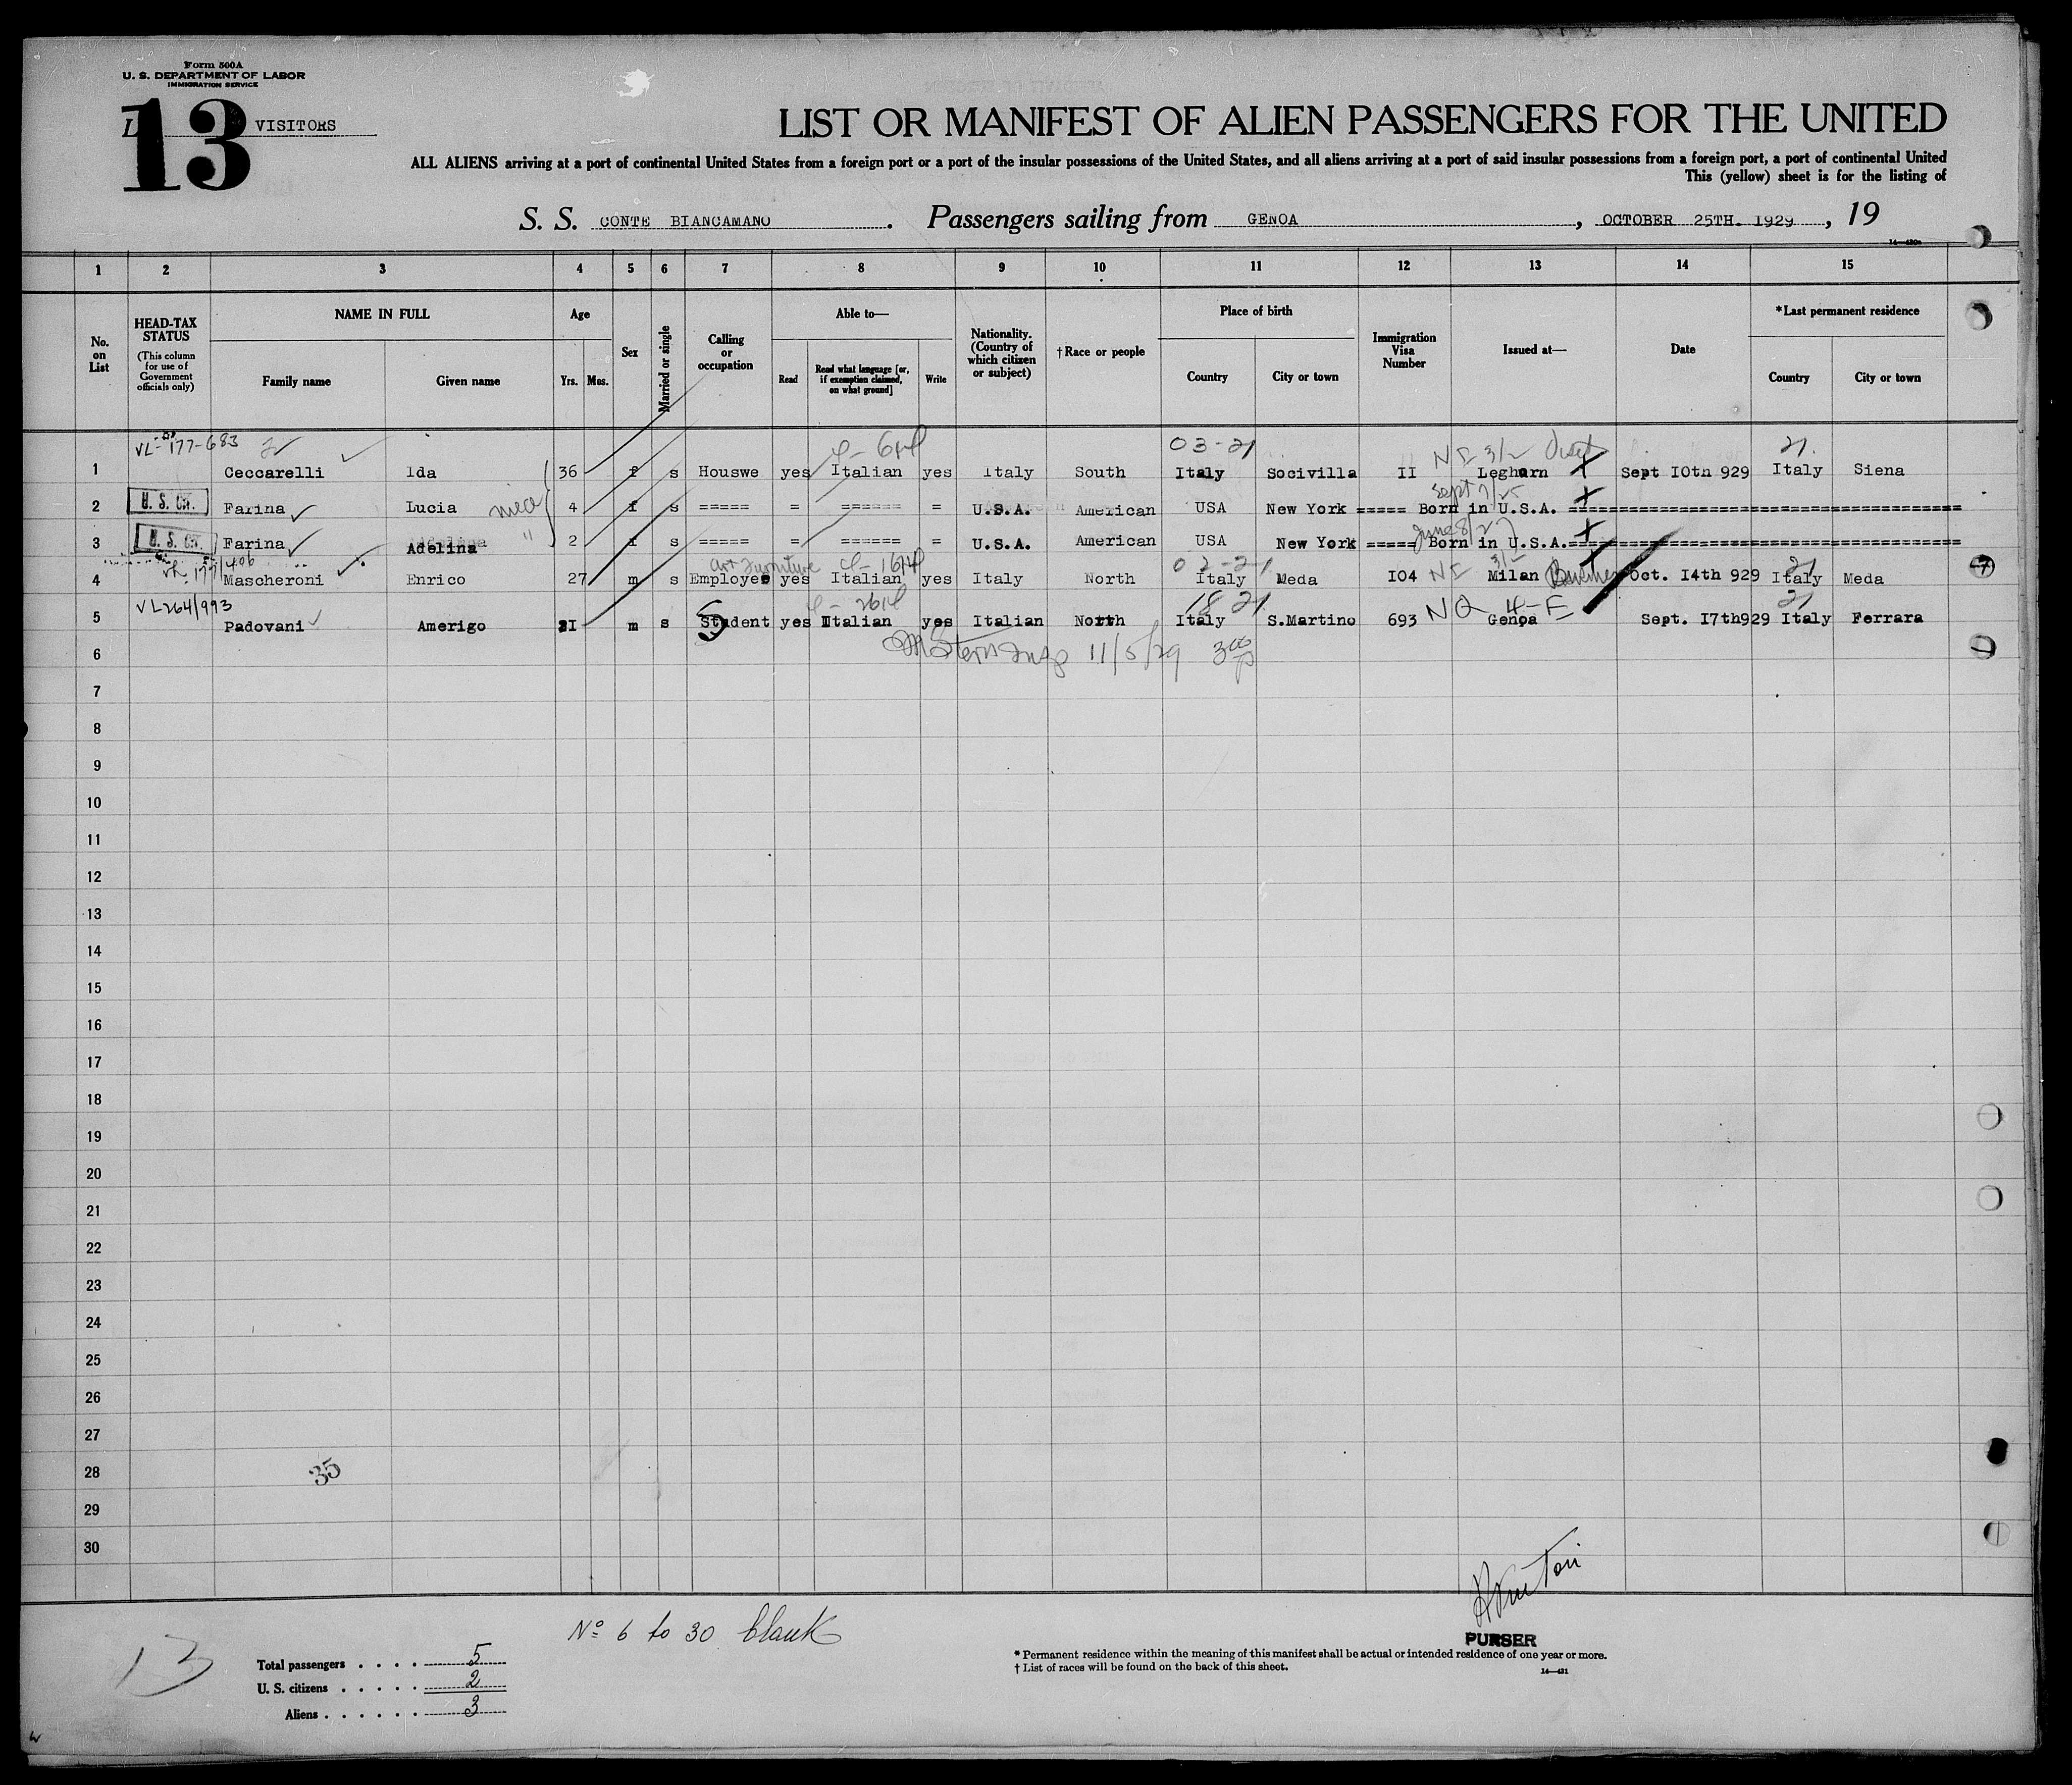 Form 500A
U. S. DEPARTMENT OF LABOR
IMMIGRATION SERVICE
13 VISITORS
LIST OR MANIFEST OF ALIEN PASSENGERS FOR THE UNITED
ALL ALIENS arriving at a port of continental United States from a foreign port or a port of the insular possessions of the United States, and all aliens arriving at a port of said insular possessions from a foreign port, a port of continental United
This (yellow) sheet is for the listing of
S. S. CONTE BIANCAMANO . Passengers sailing from GENOA , OCTOBER 25TH. 1929 , 19
14—430a
1 2 3 4 5 6 7 8 9 10 11 12 13 14 15
No. on List
HEAD-TAX STATUS (This column for use of Government officials only)
NAME IN FULL
Family name Given name
Age
Yrs. Mos.
Sex
Married or single
Calling or occupation
Able to—
Read Read what language [or, if exemption claimed, on what ground] Write
Nationality. (Country of which citizen or subject)
†Race or people
Place of birth
Country City or town
Immigration Visa Number
Issued at—
Date
*Last permanent residence
Country City or town
VL-177-683 03-21 NI 3/2 21.
1 Ceccarelli Ida 36 f s Houswe yes Italian yes Italy South Italy Socivilla II Leghorn Sept I0th 929 Italy Siena
Sept 7/25
2 U. S. Cit. Farina Lucia niece 4 f s ===== = ====== = U.S.A. American USA New York ===== Born in U.S.A. ========
June 8/27
3 U. S. Cit. Farina Adelina " 2 f s ===== = ====== = U.S.A. American USA New York ===== Born in U.S.A. ========
177/406 art furniture 02-21 NI 3/2 21
4 Mascheroni Enrico 27 m s Employee yes Italian yes Italy North Italy Meda I04 Milan Oct. I4th 929 Italy Meda
VL264/993 18 21 NQ 4-E 21
5 Padovani Amerigo 2I m s Student yes Italian yes Italian North Italy S.Martino 693 Genoa Sept. I7th929 Italy Ferrara
6 Stern Insp 11/5/29 3 00 p
7
8
9
10
11
12
13
14
15
16
17
18
19
20
21
22
23
24
25
26
27
28 35
29
30
No 6 to 30 blank
PURSER
13
Total passengers . . . . 5
U. S. citizens . . . . . 2
Aliens . . . . . . 3
* Permanent residence within the meaning of this manifest shall be actual or intended residence of one year or more.
† List of races will be found on the back of this sheet.
14—431